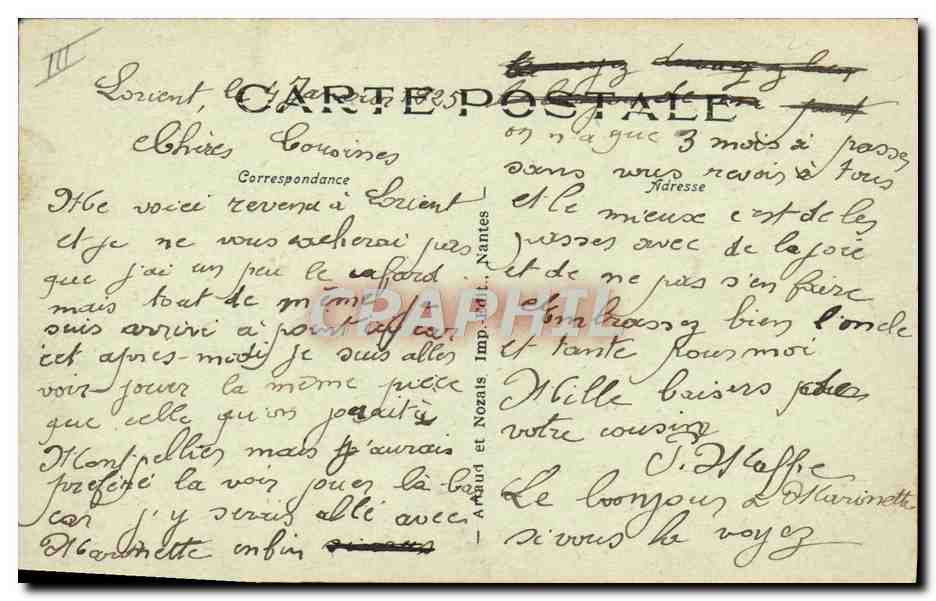 III
Lorient, le 4 Janvier 1925
CARTE POSTALE
Chères Cousines
Correspondance
Me voici revenu à Lorient
et je ne vous cacherai pas
que j'ai un peu le cafard
mais tout de même je
suis arrivé à point car
cet après-midi je suis allé
voir jouer la même pièce
que celle qu'on jouait à
Montpellier mais j'aurais
preféré la voir jouer là-bas
car j'y serais allé avec
Marinette enfin
Artaud et Nozais Imp.-Edit., Nantes
on n'a que 3 mois à passer
sans vous revoir à tous
Adresse
et le mieux c'est de les
passer avec de la joie
et de ne pas s'en faire
Embrassez bien l'oncle
et tante pour moi
Mille baisers
votre cousin
Le bonjour à Marinette
si vous la voyez
CPAPHIL